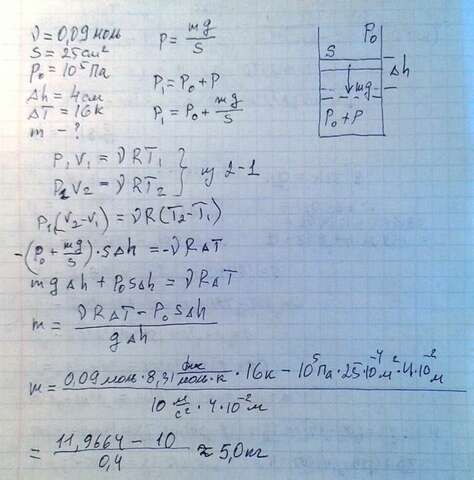 ν = 0,09 моль
S = 25 см²
P₀ = 10⁵ Па
Δh = 4 см
ΔT = 16 К
m - ?
P = mg/S
P₁ = P₀ + P
P₁ = P₀ + mg/S
P₀
S
Δh
mg
P₀ + P
P₁V₁ = νRT₁
P₁V₂ = νRT₂ } из 2-1
P₁(V₂-V₁) = νR(T₂-T₁)
-(P₀ + mg/S)·SΔh = -νRΔT
mgΔh + P₀SΔh = νRΔT
m = (νRΔT - P₀SΔh)/(gΔh)
m = (0,09 моль · 8,31 Дж/(моль·К) · 16К - 10⁵Па · 25·10⁻⁴м² · 4·10⁻²м)/(10 м/с² · 4·10⁻²м)
= (11,9664 - 10)/0,4 ≈ 5,0 кг